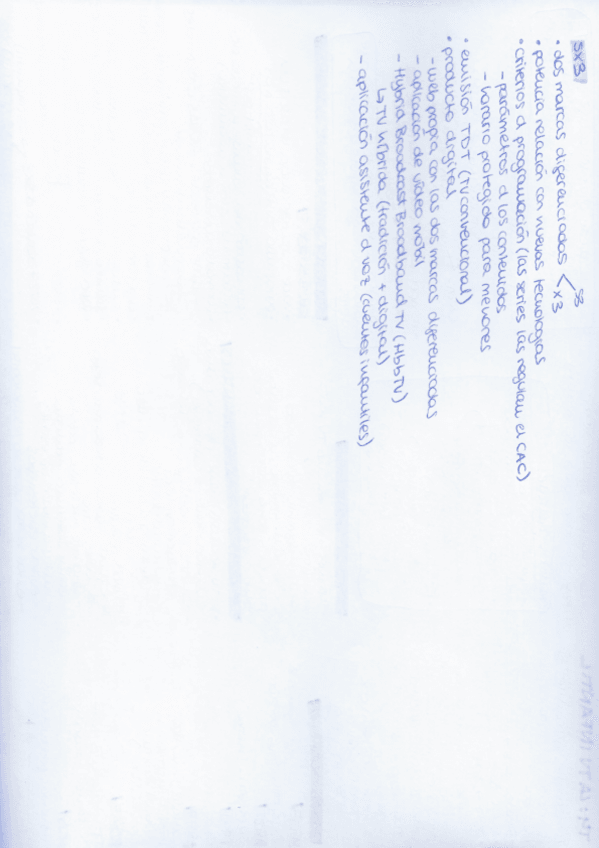 SX3
• dos marcas diferenciadas < S3
x3
• potencia relación con nuevas tecnologías
• criterios d programación (las series las regulan el CAC)
- parámetros d los contenidos
- horario protegido para menores
• emisión TDT (TV convencional)
• producto digital
- web propia con las dos marcas diferenciadas
- aplicación de vídeo móbil
- Hybrid Broadcast Broadband TV (HbbTV)
↳ TV híbrida (tradición + digital)
- aplicación asistente d voz (cuentos infantiles)